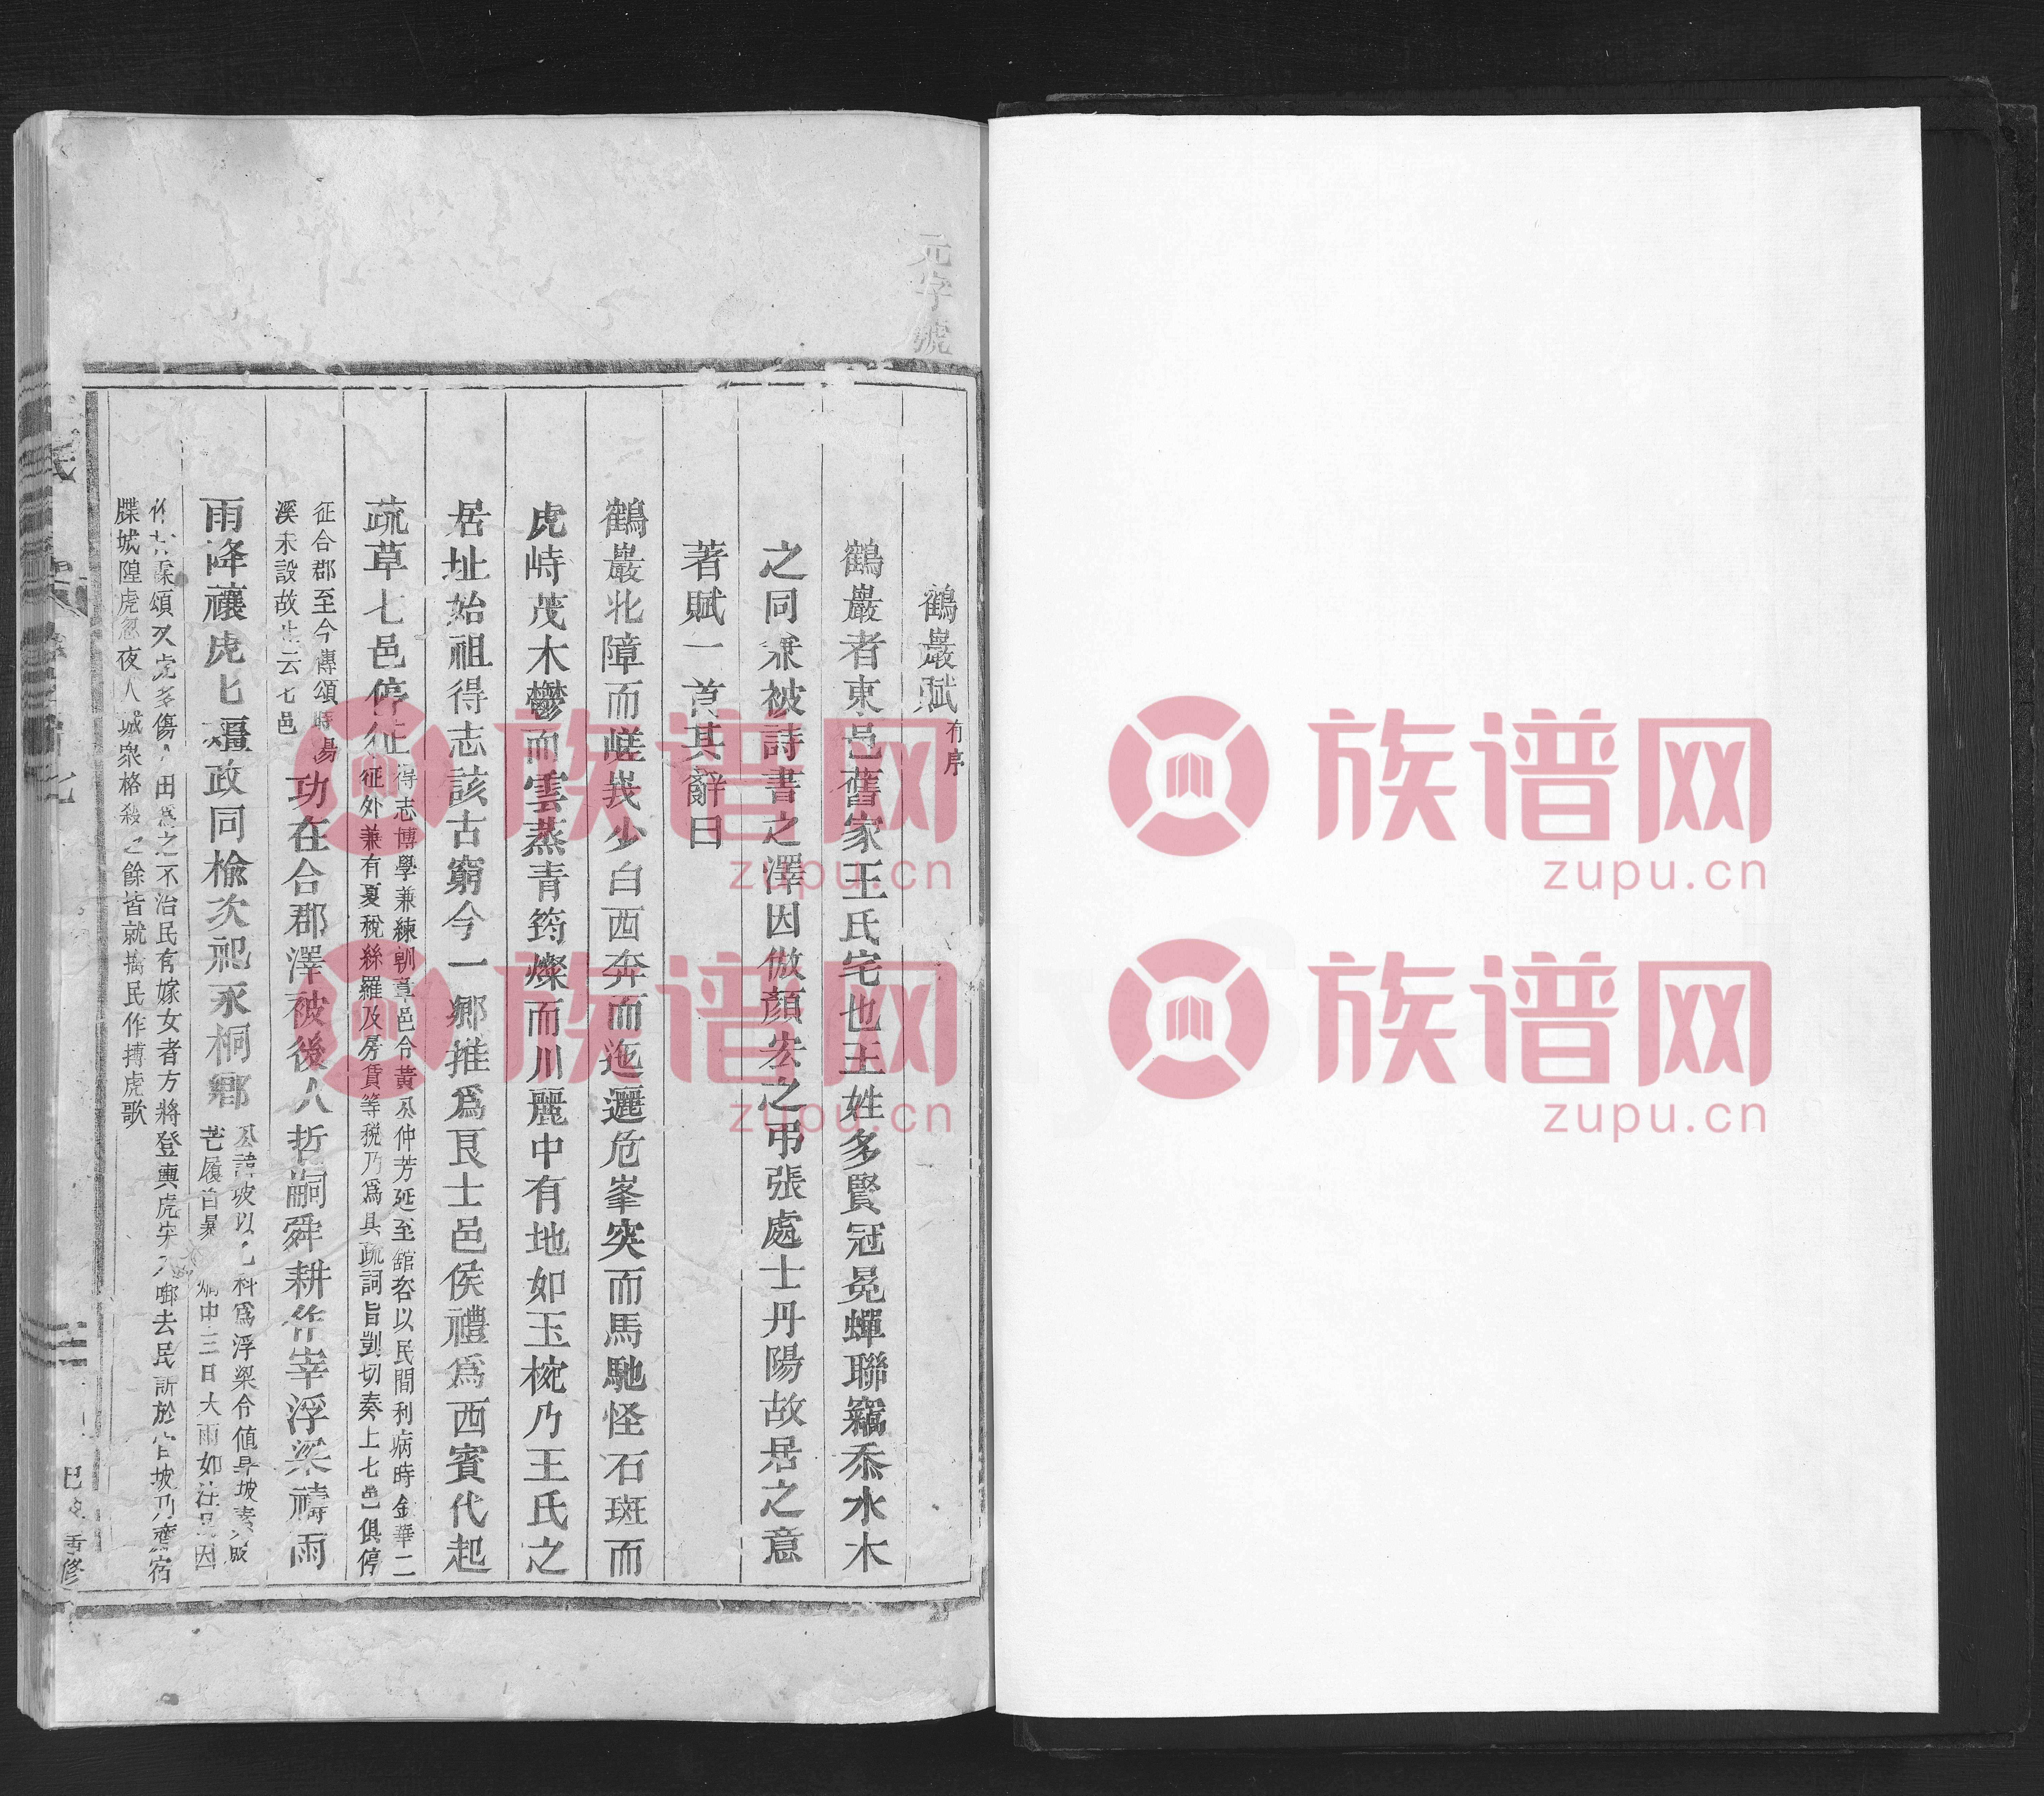 元字號
鶴巖賦有序
鶴巖者東邑舊家王氏宅也王姓多賢冠冕蟬聯竊忝水木
之同兼被詩書之澤因倣顏宏之弔張處士丹陽故居之意
著賦一首其辭曰
鶴巖北障而嵯峩少白西奔而迤邐危峯突而馬馳怪石斑而
虎峙茂木鬱而雲蒸青筠燦而川麗中有地如玉椀乃王氏之
居址始祖得志該古窮今一鄉推爲艮士邑侯禮爲西賓代起
疏草七邑停征得志博學兼練朝章邑令黃公仲芳延至舘咨以民間利病時金華二
征外兼有夏稅絲羅及房賃等稅乃爲具疏詞旨剴切奏上七邑俱停
征合郡至今傳頌時湯
溪未設故止云七邑
功在合郡澤被後人哲嗣舜耕作宰浮梁禱雨
雨降禳虎匕殭政同榆次祀永桐鄉
公諱坡以科爲浮梁令値旱坡素服
芒履自暴中三日大雨如注民因
作甘霖頌又虎多傷田爲之不治民有嫁女者方將登輿虎突啣去民訴於官坡乃齋宿
牒城隍虎忽夜入城衆格殺之餘皆就擒民作搏虎歌
氏
重修
族谱网
zupu.cn
族谱网
zupu.cn
族谱网
zupu.cn
族谱网
zupu.cn